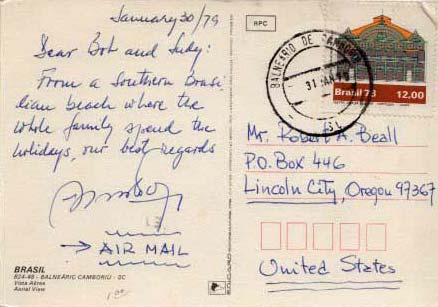 January 30/79
Dear Bob and Judy:
From a Southern Brasi
lian beach where the
whole family spend the
holidays, our best regards
→ AIR MAIL
BRASIL
BALNEÁRIO CAMBORIU - SC
Vista Aérea
Aerial View
RPC
BALNEÁRIO DE CAMBORIU
31 JAN
SC
Brasil 78 12,00
Mr. Robert A. Beall
P.O. Box 446
Lincoln City, Oregon 97367
United States